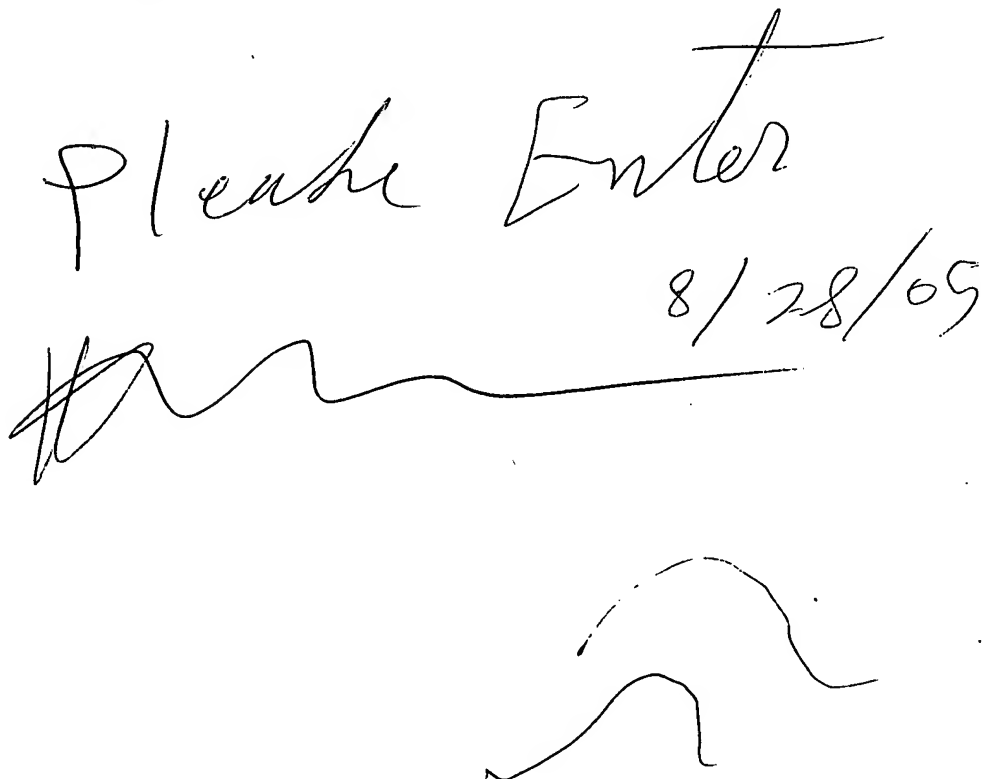 Please Enter
8/28/05